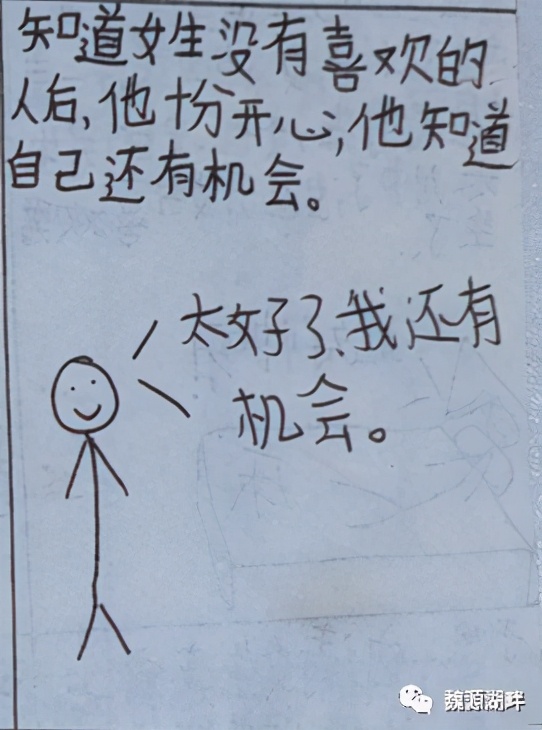 知道女生没有喜欢的
人后，他十分开心，他知道
自己还有机会。
太好了、我还有
机会。
魏源湖畔